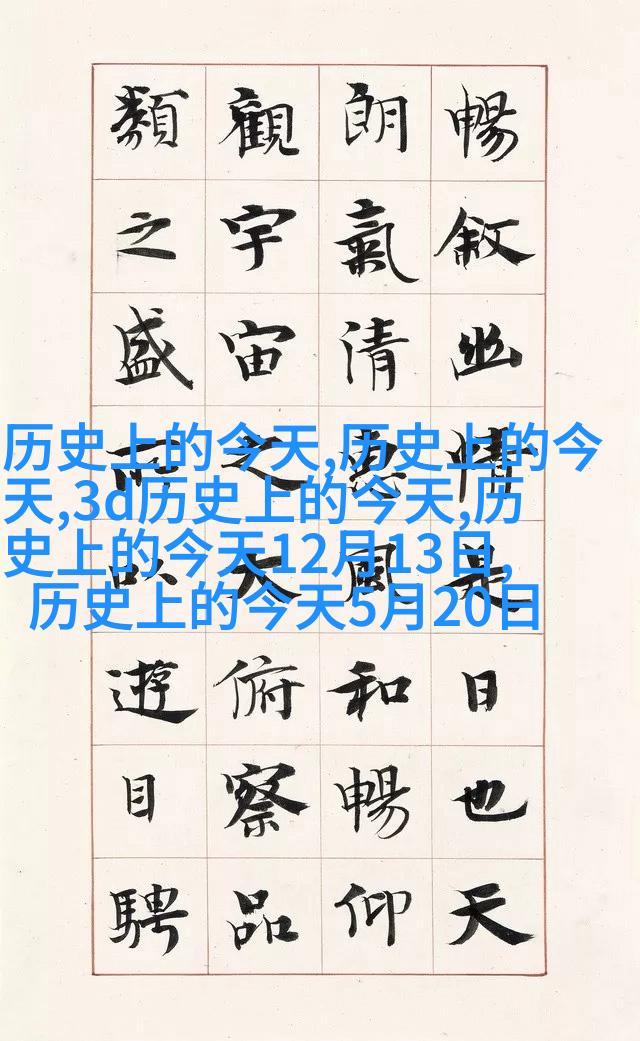 暢敘幽情是日也天
朗氣清惠風和暢仰
觀宇宙之大俯察品
類之盛所以遊目騁
历史上的今天,历史上的今
天,3d历史上的今天,历
史上的今天12月13日,
历史上的今天5月20日